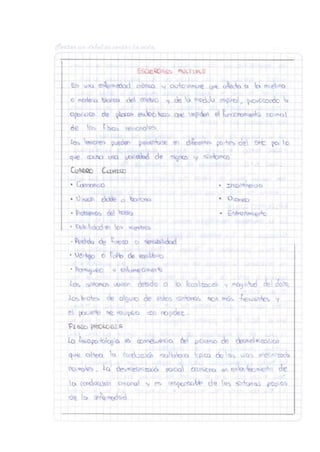 ESCLEROSIS MÚLTIPLE
Es una enfermedad crónica y autoinmune que afecta a la mielina
o materia blanca del cerebro y de la médula espinal, provocando la
aparición de placas escleróticas que impiden el funcionamiento normal
de las fibras nerviosas.
Las lesiones pueden presentarse en diferentes partes del SNC por lo
que causa una variedad de signos y síntomas
CUADRO CLÍNICO
• Cansancio
• Visión doble o borrosa
• Problemas del habla
• Debilidad en los miembros
• Pérdida de fuerza o sensibilidad
• Vértigo o falta de equilibrio
• Hormigueo y entumecimiento
• Incontinencia
• Diarrea
• Estreñimiento
Los síntomas varían debido a la localización y magnitud del daño
Los brotes de alguno de estos síntomas son más frecuentes y
el paciente se recupera con rapidez.
FISIOPATOLOGÍA
La fisiopatología es consecuencia del proceso de desmielinización
que altera la conducción saltatoria típica de las vías mielinizadas
normales. La desmielinización parcial ocasiona un enlentecimiento de
la conducción axonal y es responsable de los síntomas propios
de la enfermedad.